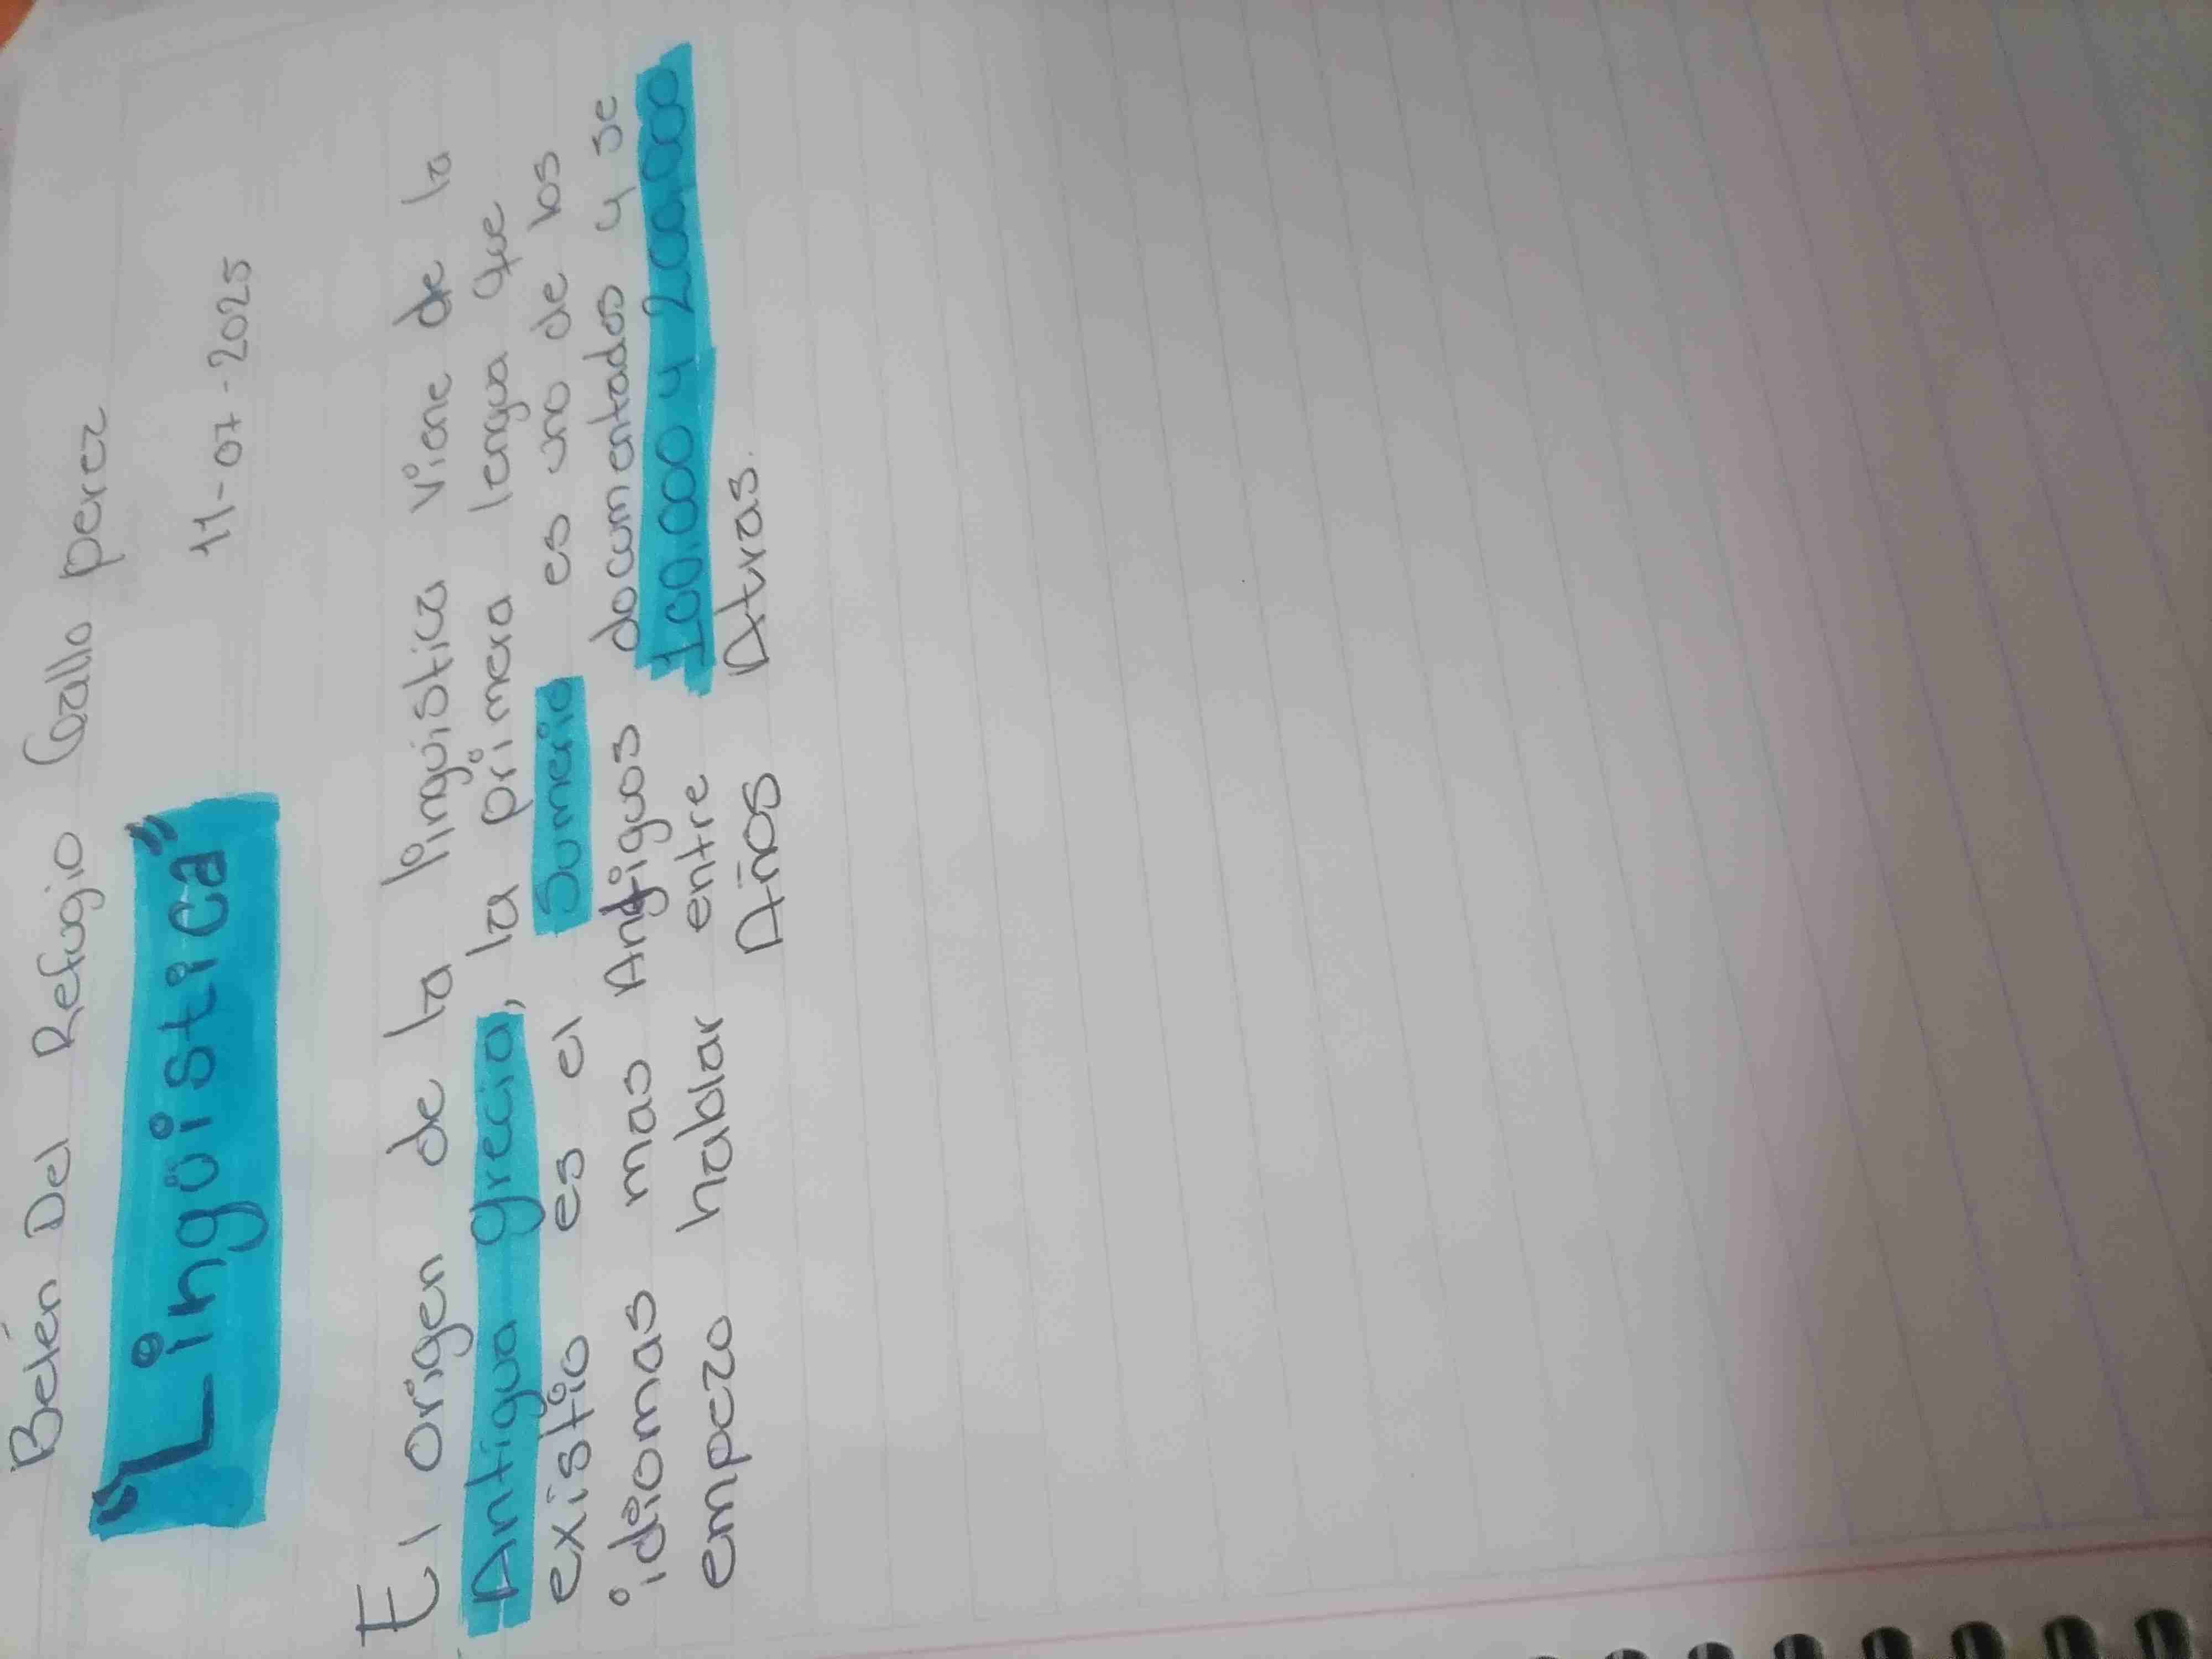 Belén Del Refugio Gallo perez
"Lingüistica"
11-07-2025
El origen de la lingüistica viene de la
Antigua grecia, la primera lengua que
existio es el Sumerio es uno de los
idiomas mas Antiguos documentados y se
empezo hablar entre 100.000 y 200,000
Años Atras.